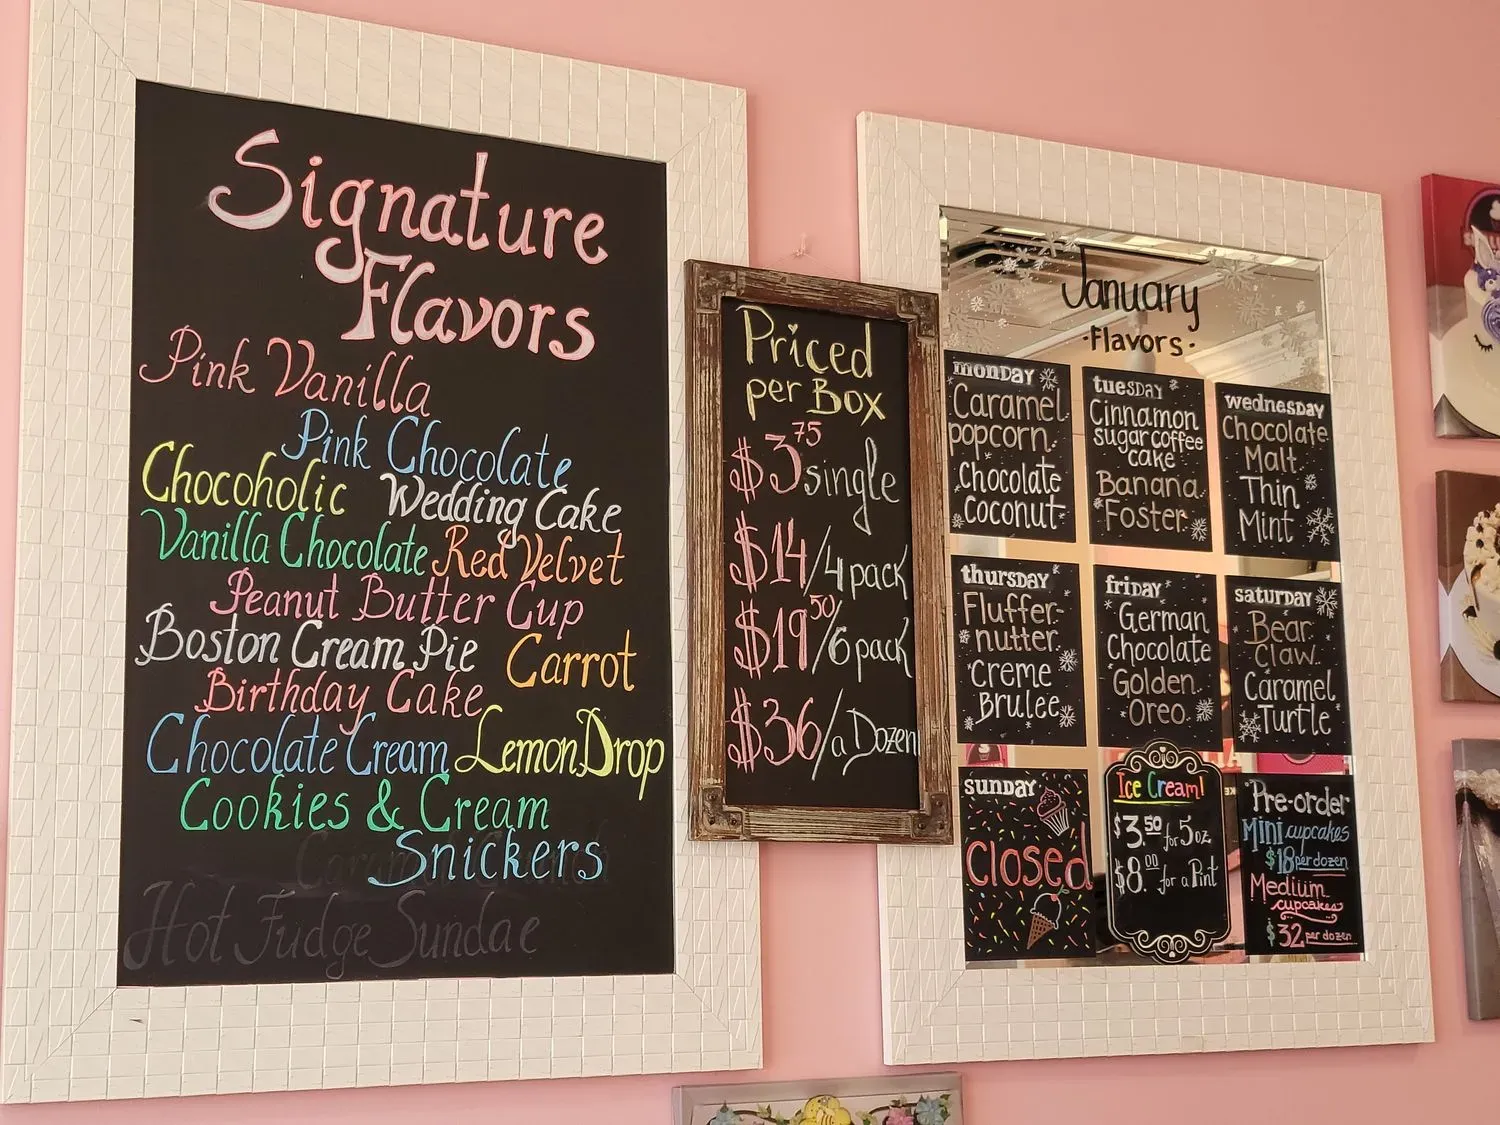 Signature
Flavors
Pink Vanilla
Pink Chocolate
Chocoholic Wedding Cake
Vanilla Chocolate Red Velvet
Peanut Butter Cup
Boston Cream Pie Carrot
Birthday Cake
Chocolate Cream Lemon Drop
Cookies & Cream
Snickers
Hot Fudge Sundae
Priced
per Box
$3.75 single
$14/4 pack
$19.50/6 pack
$36/a Dozen
January
·Flavors·
monday
Caramel
popcorn
Chocolate
Coconut
tuesday
Cinnamon
sugar coffee
cake
Banana
Foster
wednesday
Chocolate
Malt
Thin
Mint
thursday
Fluffer-
nutter
Creme
Brulee
friday
German
Chocolate
Golden
Oreo
saturday
Bear
Claw
Caramel
Turtle
sunday
Closed
Ice Cream!
$3.50 for 5oz
$8.00 for a Pint
Pre-order
Mini cupcakes
$18 per dozen
Medium
cupcakes
$32 per dozen